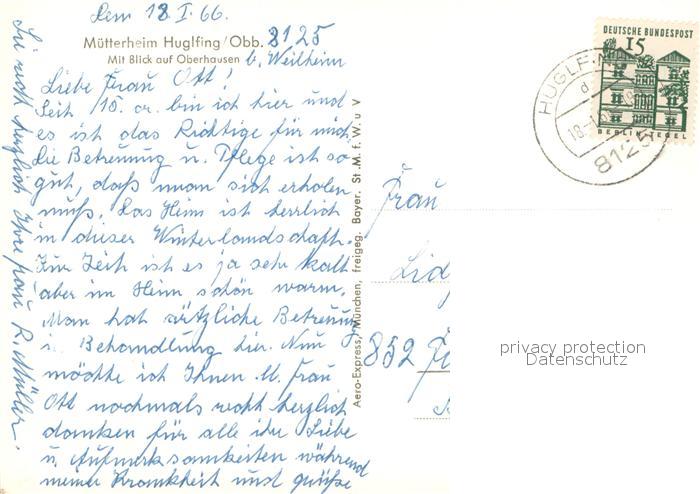 Dem 18. I. 66.
Mütterheim Huglfing/Obb. 8125
Mit Blick auf Oberhausen b. Weilheim
Liebe Frau Ott!
Seit 15. cr. bin ich hier und
es ist das Richtige für mich.
Die Betreuung u. Pflege ist so
gut, daß man sich erholen
muß. Das Heim ist herrlich
in dieser Winterlandschaft.
Zur Zeit ist es ja sehr kalt
aber im Heim schön warm.
Man hat ärztliche Betreuung
Behandlung hier. Nun
möchte ich Ihnen lb. Frau
Ott nochmals recht herzlich
danken für alle ihre Liebe
u. Aufmerksamkeiten während
meiner Krankheit und grüße
Sie recht herzlich Ihre Frau R. Müller.
Aero-Express, München, freigeg. Bayer. St. M. f. W. u V
DEUTSCHE BUNDESPOST
15
BERLIN-TEGEL
HUGLFIN
d
18.-1
8125
Frau
Lid
852
privacy protection
Datenschutz